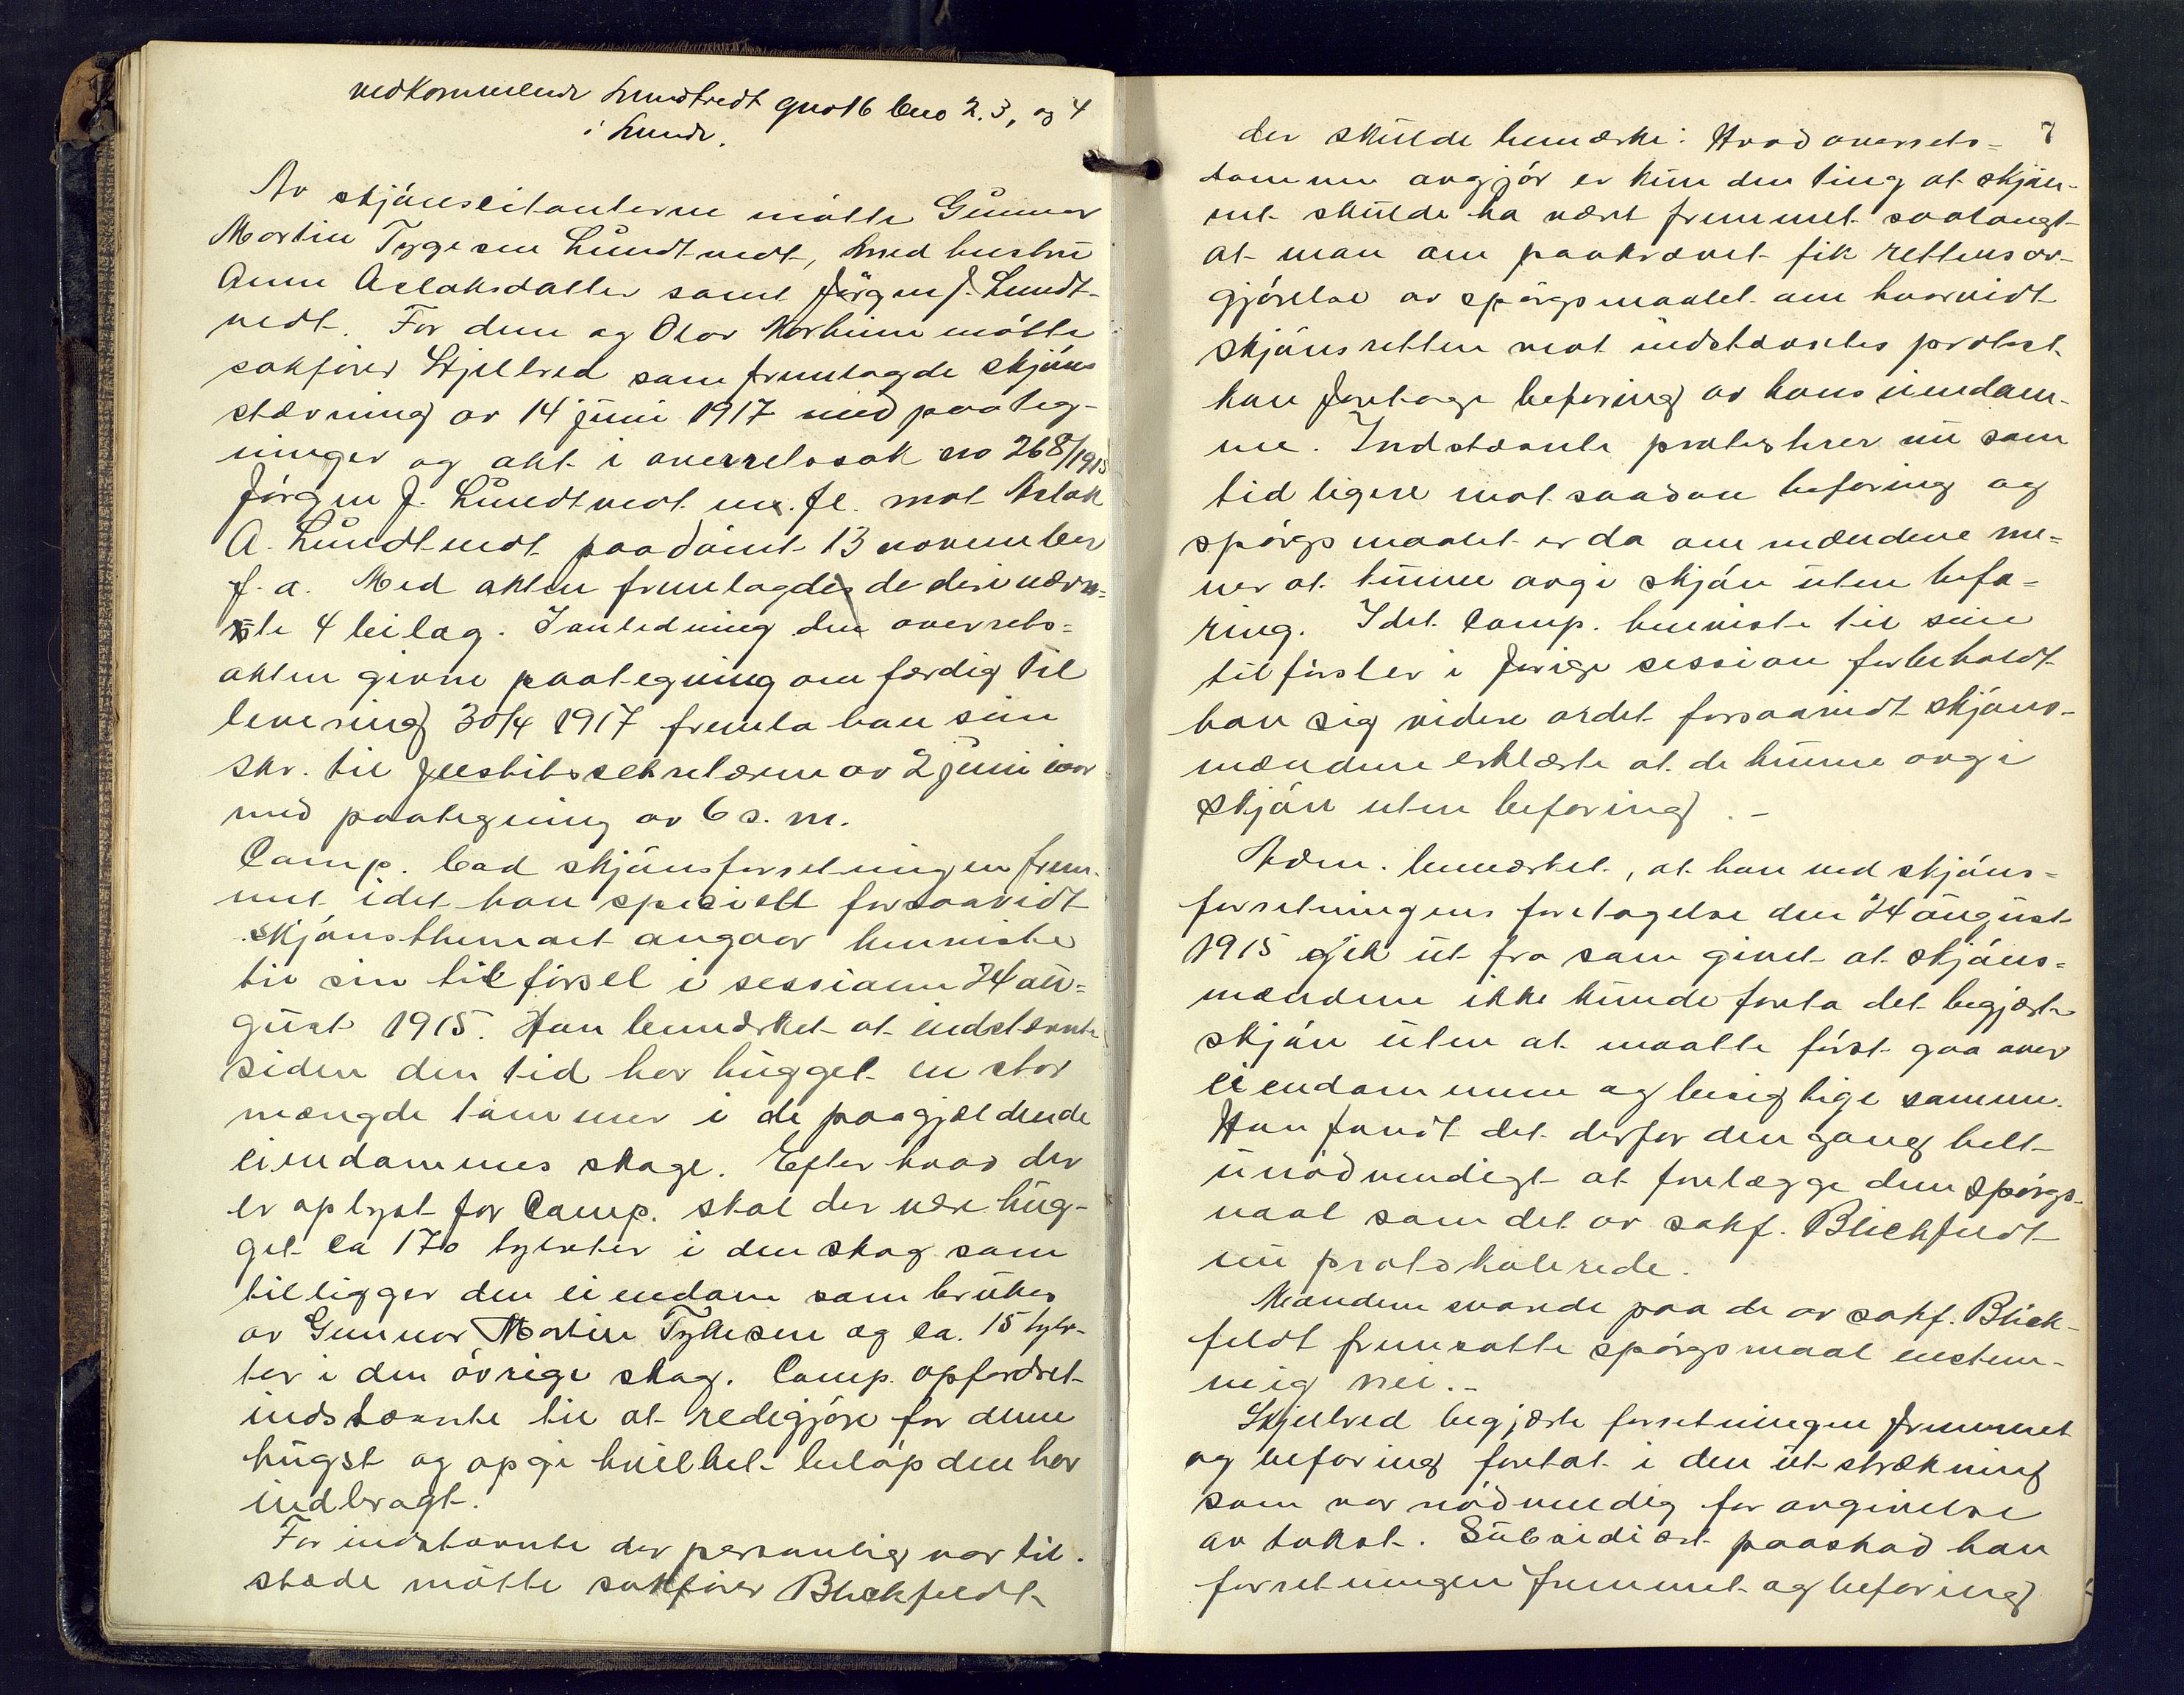 vedkommende Lundtvedt gno 16 bno 2.3, og 4
i Lunde.
Av skjönscitanterne mötte Gunnar
Martin Tygesen Lundtvedt, med hustru
Anne Aslaksdatter samt Jörgen J. Lundt-
vedt. For dem og Olav Norheim mötte
sakförer Skjelbred som fremlagde skjöns
stævning av 14 juni 1917 med paateg-
ninger og akt i overretssak no 268/1915
Jörgen J. Lundtvedt m. fl. mot Aslak
A. Lundtvedt paadömt 13 november
f. a. Med akten fremlagdes de deri nævn-
te 4 bilag. I anledning den overrets-
akten givne paategning om færdig til
levering 30/4 1917 fremla han sin
skr. til Justitssekretæren av 2 juni iaar
med paategning av 6 s. m.
Comp. bad skjönsforretningen frem-
met idet han specielt forsaavidt
skjönsthemaet angaar henviste
til sin tilförsel i sessionen 24 au-
gust 1915. Han bemerket at indstævnte
siden den tid har hugget en stor
mængde tömmer i de paagjældende
eiendommes skoge. Efter hvad der
er oplyst for Comp. skal der være hug-
get ca 170 tylvter i den skog som
tilligger den eiendom som brukes
av Gunnar Martin Tykesen og ca. 15 tylv-
ter i den övrige skog. Comp. opfordret
indstævnte til at redegjöre for denne
hugst og opgi hvilket belöp den har
indbragt.
For indstævnte der personlig var til-
stede mötte sakförer Blickfeldt
7
der skulde bemærke: Hvad overrets-
dommen avgjör er kun den ting at skjön-
net skulde ha været fremmet saalangt
at man om paakrævet fik rettens av-
gjörelse av spörgsmaalet om hvorvidt
skjönsretten mot indstævntes protest
kan foretage befaring av hans eiendom-
me. Indstævnte protesterer nu som
tidligere mot saadan befaring og
spörgsmaalet er da om mændene me-
ner at kunne avgi skjön uten befa-
ring. Idet Comp. henviste til sine
tilförsler i forrige session forbeholdt
han sig videre ordet forsaavidt skjöns-
mændene erklærte at de kunne avgi
skjön uten befaring. -
Adm. bemærket, at han ved skjöns-
forretningens foretagelse den 24 august
1915 gik ut fra som givet at skjöns-
mændene ikke kunde foreta det begjærte
skjön uten at maatte först gaa over
eiendommene og besigtige samme.
Han fandt det derfor den gang helt
unödvendigt at forelægge dem spörgs-
maal som det av sakf. Blickfeldt
nu protokolerede.
Mændene svarede paa de av sakf. Blick-
feldt fremsatte spörgsmaal enstem-
mig nei.-
Skjelbred begjærte forretningen fremmet
og befaring foretat i den utstrækning
som var nödvendig for avgivelse
av takst. Subsidiært paastod han
forretningen fremmet og befaring